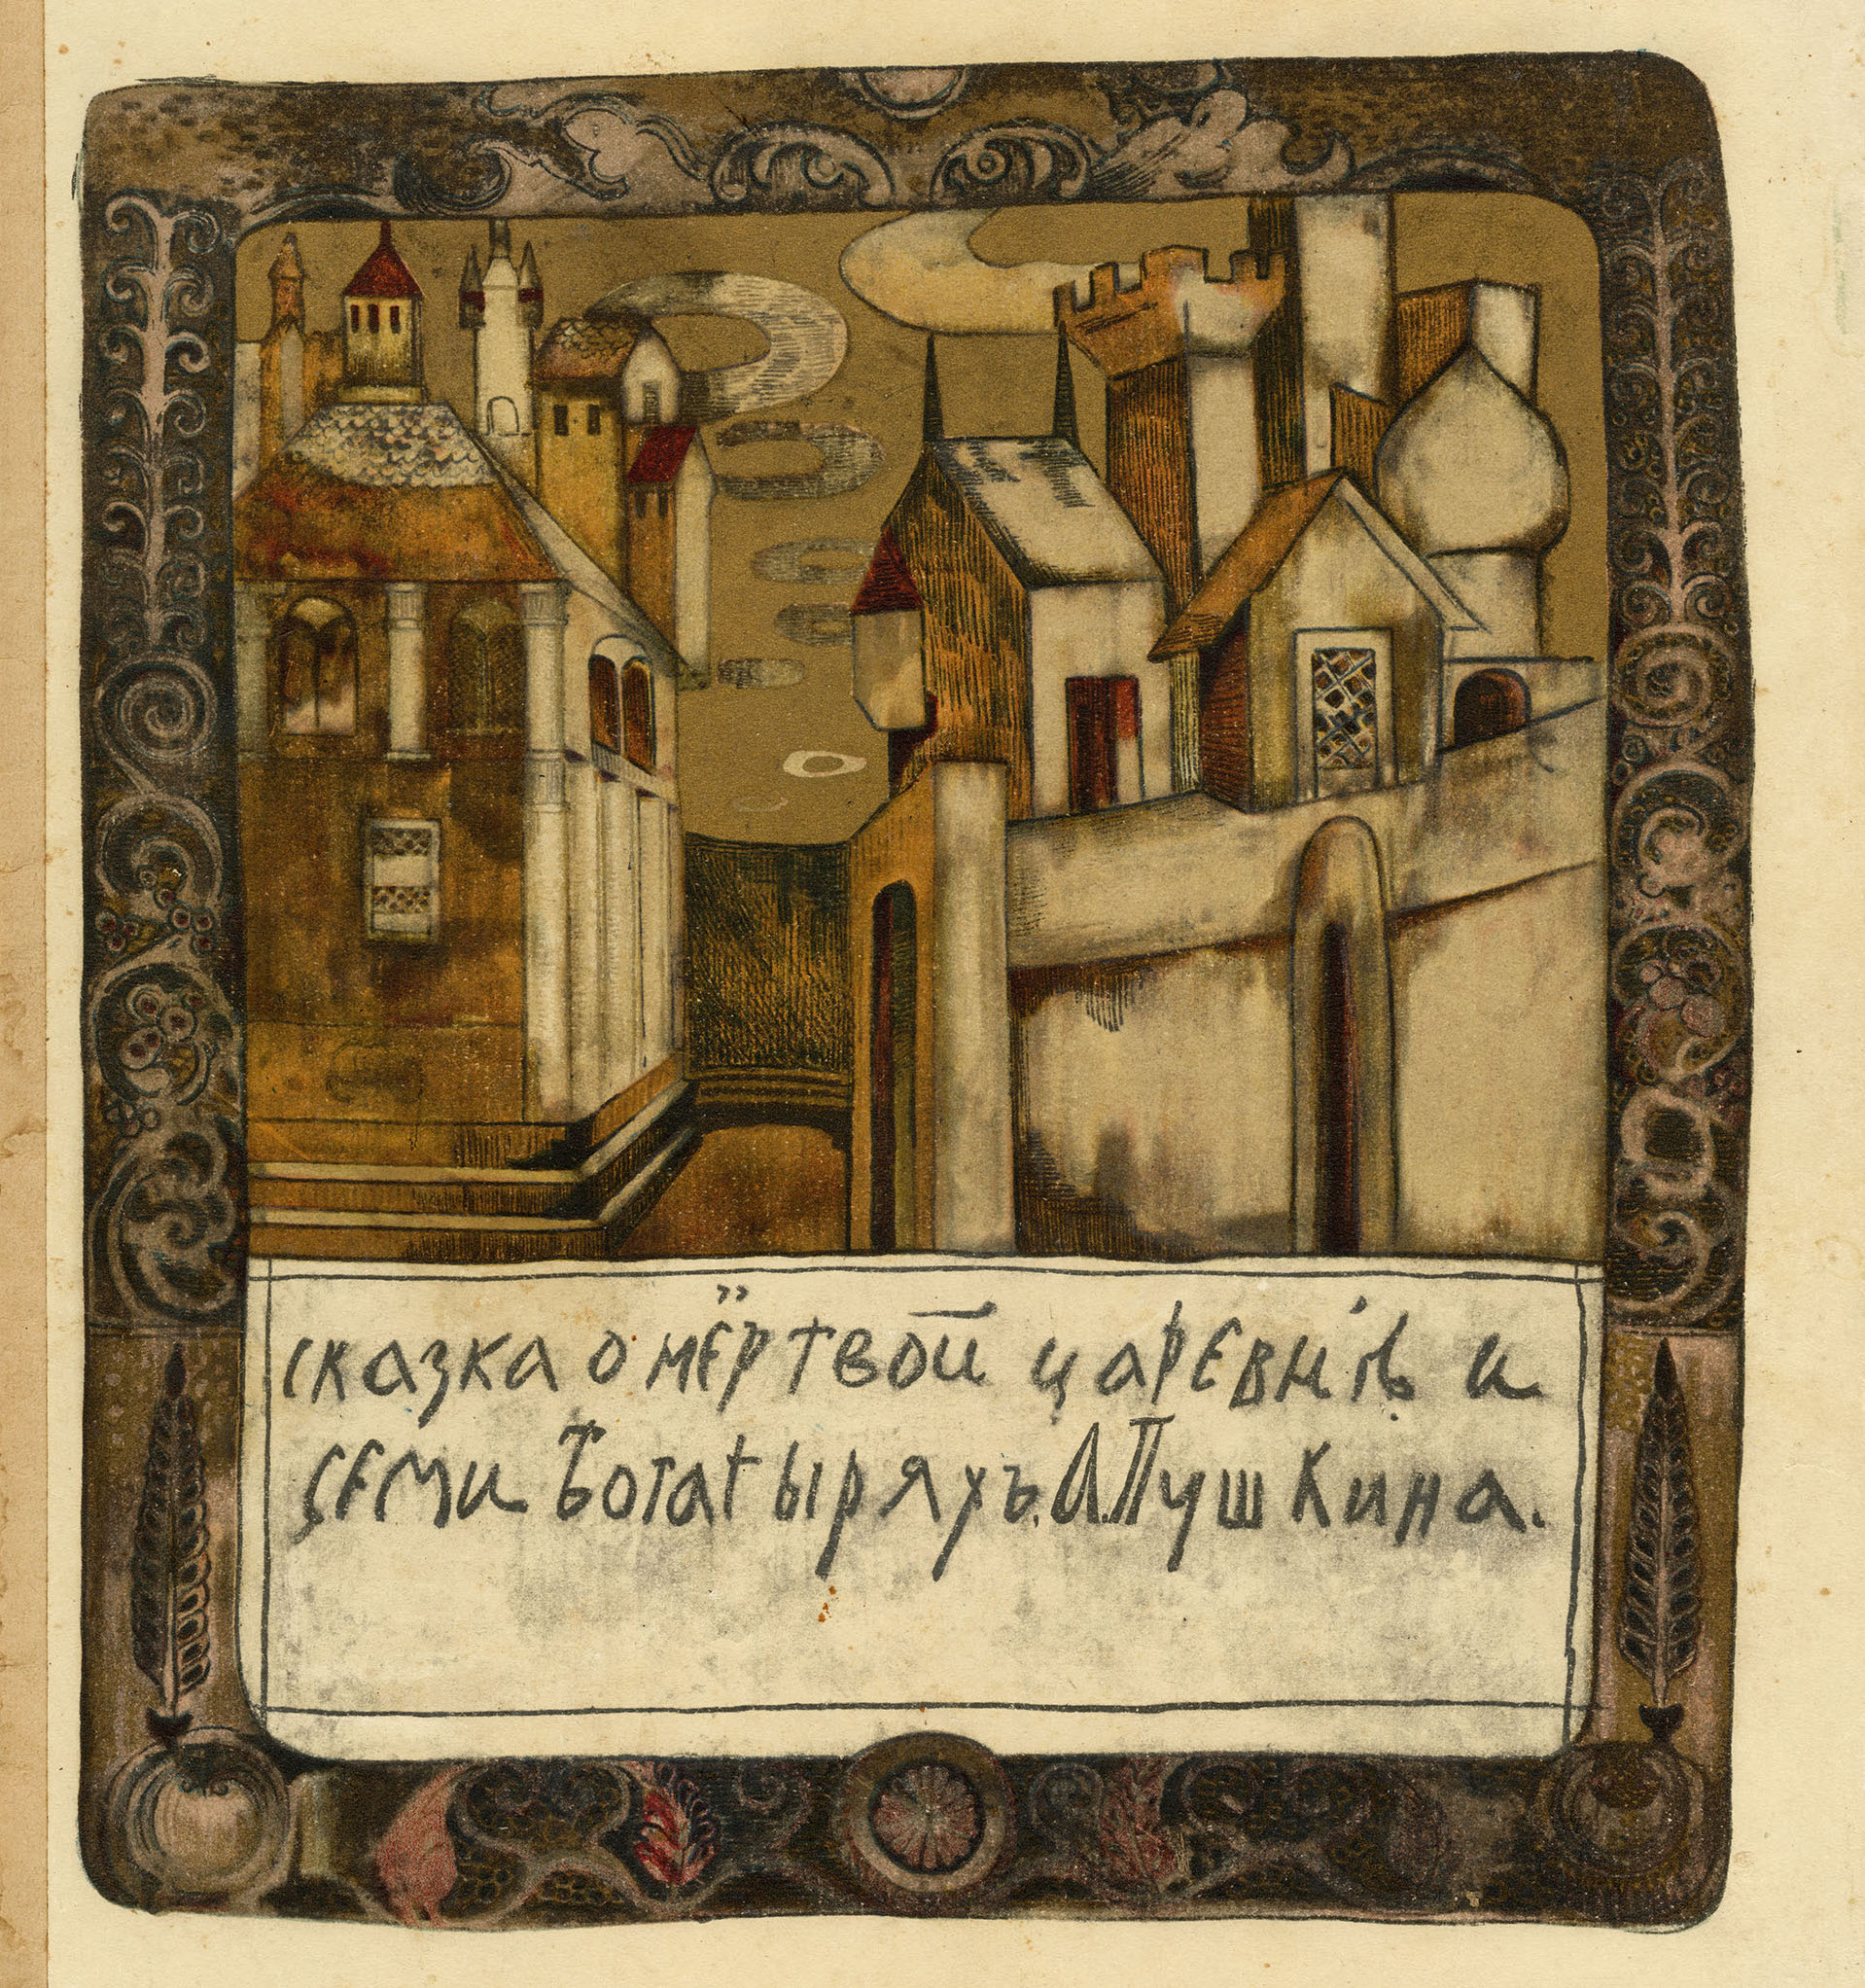 сказка о мёртвой царевнѣ и
семи богатыряхъ. А.Пушкина.